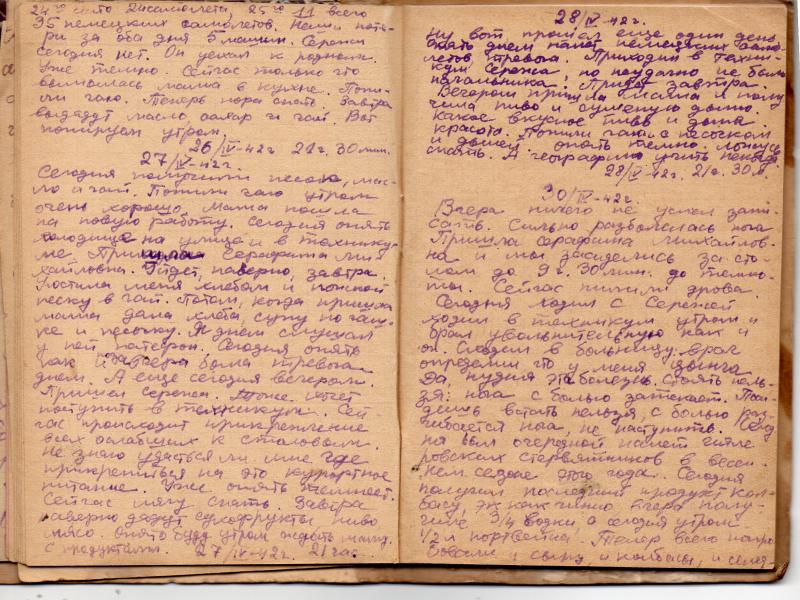 24го сбито 24 самолета, 25го 11 всего
35 немецких самолетов. Наши поте-
ри за оба дня 5 машин. Сережи
сегодня нет. Он уехал к родным.
Уже темно. Сейчас только что
вымылась мама в кухне. Попи-
ли чаю. Теперь пора спать. Завтра
выдадут масло, сахар и чай. Вот
попируем утром.
26/IV-42г. 21г. 30мин.
27/IV-42г.
Сегодня получили песок, мас-
ло и чай. Попили чаю утром
очень хорошо. Мама пошла
на новую работу. Сегодня опять
холодище на улице и в технику-
ме. Пришла Серафима Ми-
хайловна. Уйдет, наверно, завтра.
Угостила меня хлебом и
песку в чай. Потом, когда пришла
мама дала хлеба, супу по
ке и песочку. Я днем слушал
у ней патефон. Сегодня опять
как и вчера была тревога
днем. А еще сегодня вечером.
Пришел Сережа. Тоже хочет
поступить в техникум. Сей-
час происходит прикрепление
всех слабящих к столовым.
Не знаю удасться ли мне где
прикрепиться на это курортное
питание. Уже опять темнеет.
Сейчас лягу спать. Завтра
наверно дадут сухофрукты пиво
мясо. Опять буду утром ждать маму
с продуктами. 27/IV-42г. 21час.
28/IV-42г.
Ну вот прошел еще один день
опять днем налет немецких само-
летов, тревога. Приходил в техни-
кум Сережа, но неудачно не было
начальника. Придет завтра.
Вечером пришла мама. Я полу-
чила пиво и сушеную дыню.
Какое вкусное пиво и дыня
красота. Попили чаю с песочком
и дыней. опять темно. ложусь
спать. А географию учить
28/IV-42г. 21г. 30м.
30/IV-42г.
Вчера ничего не успел запи-
сать. Сильно разболелась нога
Пришла Серафима Михайлов-
на и мы засиделись за сто-
лом до 9г. 30мин. до темно-
ты. Сейчас пилили дрова.
Сегодня ходил с Сережей
ходил в техникум утром и
брал увольнительную как и
он. Сходил в больницу: врач
определил что у меня цынга
Да, нудная эта болезнь. Стоять нель-
зя: нога с болью затекает. Поси-
дишь встать нельзя, с болью раз-
гибается нога, не наступить. Сегод
ня был очередной налет гитле-
ровских стервятников в весен-
нем сезоне этого года. Сегодня
получили последний продукт кол-
басу, так как пиво вчера полу-
чили 3/4 водки а сегодня утром
1/2л портвейна. Теперь всего напро
бовали и сыру, и колбасы, и